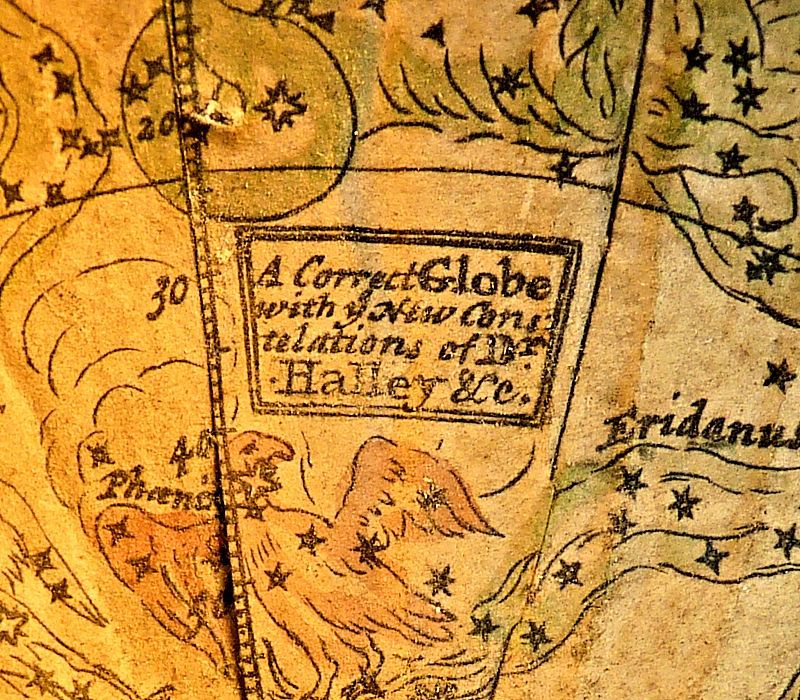 20
30
A Correct Globe
with ye New Cons:
telations of Dr
Halley &c.
Eridanus
40
Phœnix